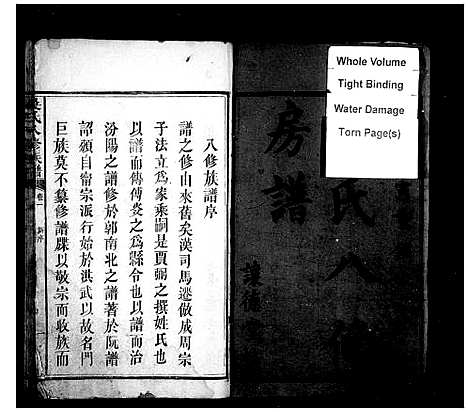 Whole Volume
Tight Binding
Water Damage
Torn Page(s)
氏八
房譜
八修族譜序
譜之修由來舊矣漢司馬遷倣成周宗
子法立爲家乘嗣是賈弼之撰姓氏也
以譜而傳傅燮之爲縣令也以譜而治
汾陽之譜修於郭南北之譜著於阮譜
詔頒自甯宗派行始於洪武以故名門
巨族莫不纂修譜牒以敬宗而收族而
氏八修族譜
卷一
新序